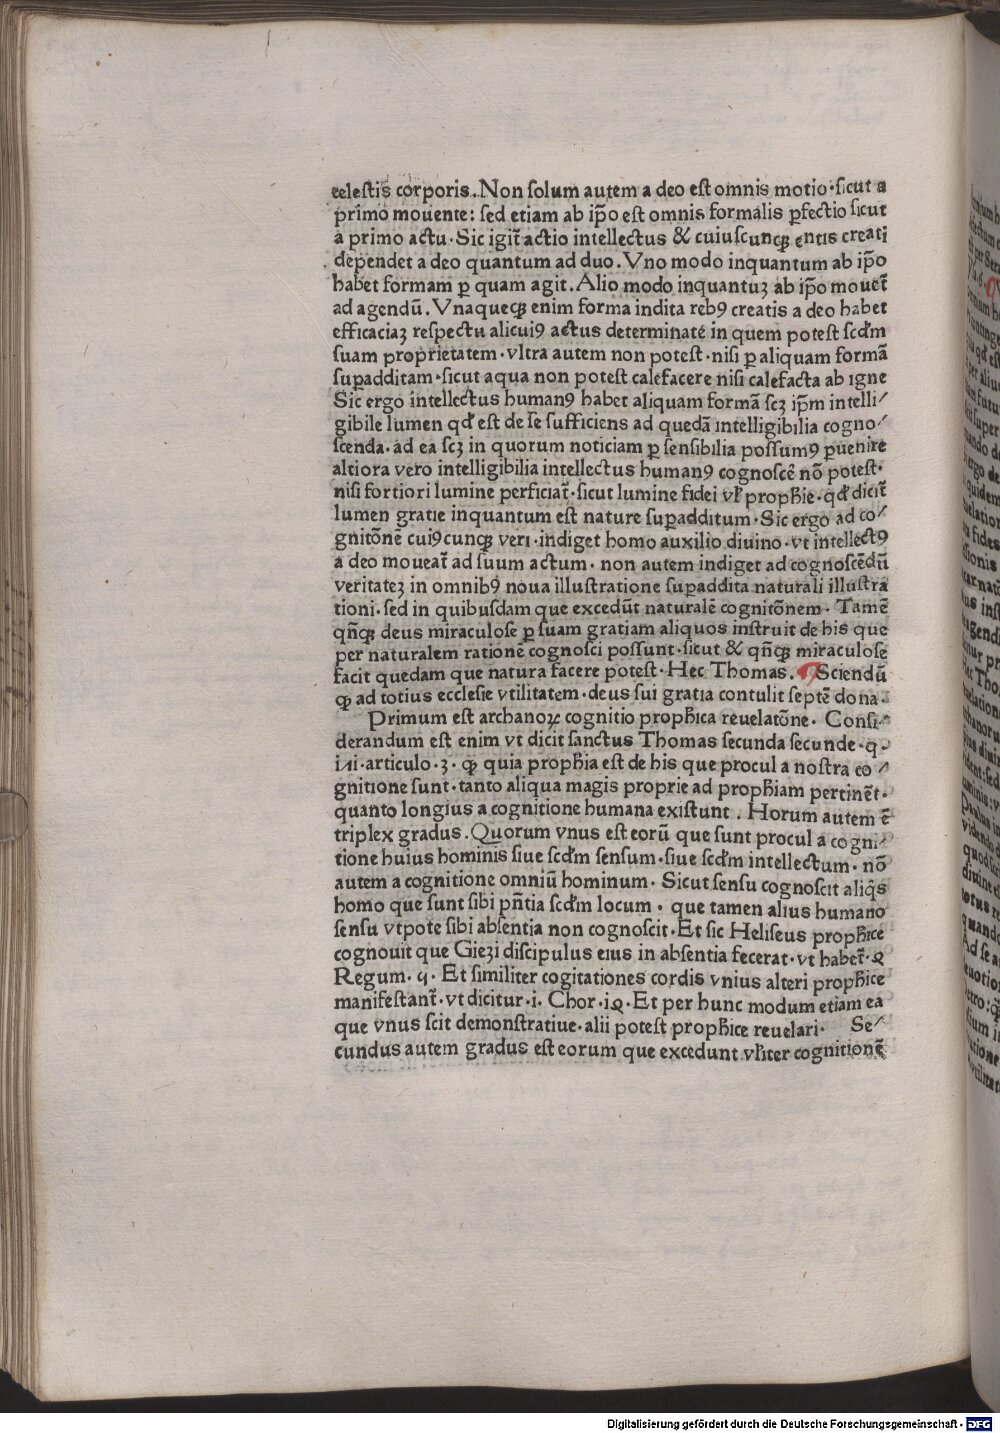 celestis corporis. Non solum autem a deo est omnis motio·sicut a
primo mouente: sed etiam ab ip̄o est omnis formalis ꝑfectio sicut
a primo actu·Sic igit̄ actio intellectus & cuiuscunqꝫ entis creati
dependet a deo quantum ad duo. Vno modo inquantum ab ip̄o
habet formam ꝑ quam agit. Alio modo inquantuꝫ ab ip̄o mouet̄
ad agendū. Vnaqueqꝫ enim forma indita rebꝰ creatis a deo habet
efficaciaꝫ respectu alicuiꝰ actus determinatē in quem potest scd̄m
suam proprietatem·vltra autem non potest·nisi ꝑ aliquam formā
suꝑadditam·sicut aqua non potest calefacere nisi calefacta ab igne
Sic ergo intellectus humanꝰ habet aliquam formā scꝫ ip̄m intelli⸗
gibile lumen qd̄ est de se sufficiens ad quedā intelligibilia cogno⸗
scenda·ad ea scꝫ in quorum noticiam ꝑ sensibilia possumꝰ ꝑuenire
altiora vero intelligibilia intellectus humanꝰ cognoscē nō potest·
nisi fortiori lumine perficiat̄·sicut lumine fidei vl̄ proph̄ie·qd̄ dicit̄
lumen gratie inquantum est nature suꝑadditum·Sic ergo ad co⸗
gnitōnē cuiꝰcunqꝫ veri·indiget homo auxilio diuino·vt intellectꝰ
a deo moueat̄ ad suum actum·non autem indiget ad cognoscēdū
veritateꝫ in omnibꝰ noua illustratione suꝑaddita naturali illustra
tioni·sed in quibusdam que excedūt naturalē cognitōnem·Tamē
qn̄qꝫ deus miraculose ꝑ suam gratiam aliquos instruit de his que
per naturalem rationē cognosci possunt·sicut & qn̄qꝫ miraculose
facit quedam que natura facere potest·Hec Thomas. ¶Sciendū
ꝙ ad totius ecclesie vtilitatem·deus sui gratia contulit septē dona·
Primum est archanoꝝ cognitio proph̄ica reuelatōne·Consi⸗
derandum est enim vt dicit sanctus Thomas secunda secunde·q·
articulo·3·ꝙ quia proph̄ia est de his que procul a nostra co⸗
gnitione sunt·tanto aliqua magis proprie ad proph̄iam pertinēt·
quanto longius a cognitione humana existunt. Horum autem ē
triplex gradus. Quorum vnus est eorū que sunt procul a cogni⸗
tione huius hominis siue scd̄m sensum·siue scd̄m intellectum·nō
autem a cognitione omniū hominum·Sicut sensu cognoscit aliq̄s
homo que sunt sibi pn̄tia scd̄m locum·que tamen alius humano
sensu vtpote sibi absentia non cognoscit·Et sic Heliseus proph̄ice
cognouit que Gieꝫi discipulus eius in absentia fecerat·vt habet̄·4
Regum·Et similiter cogitationes cordis vnius alteri proph̄ice
manifestant̄·vt dicitur·i·Chor·i4·Et per hunc modum etiam ea
que vnus scit demonstratiue·alii potest proph̄ice reuelari· Se⸗
cundus autem gradus est eorum que excedunt vl̄iter cognitionē
Digitalisierung gefördert durch die Deutsche Forschungsgemeinschaft - DFG